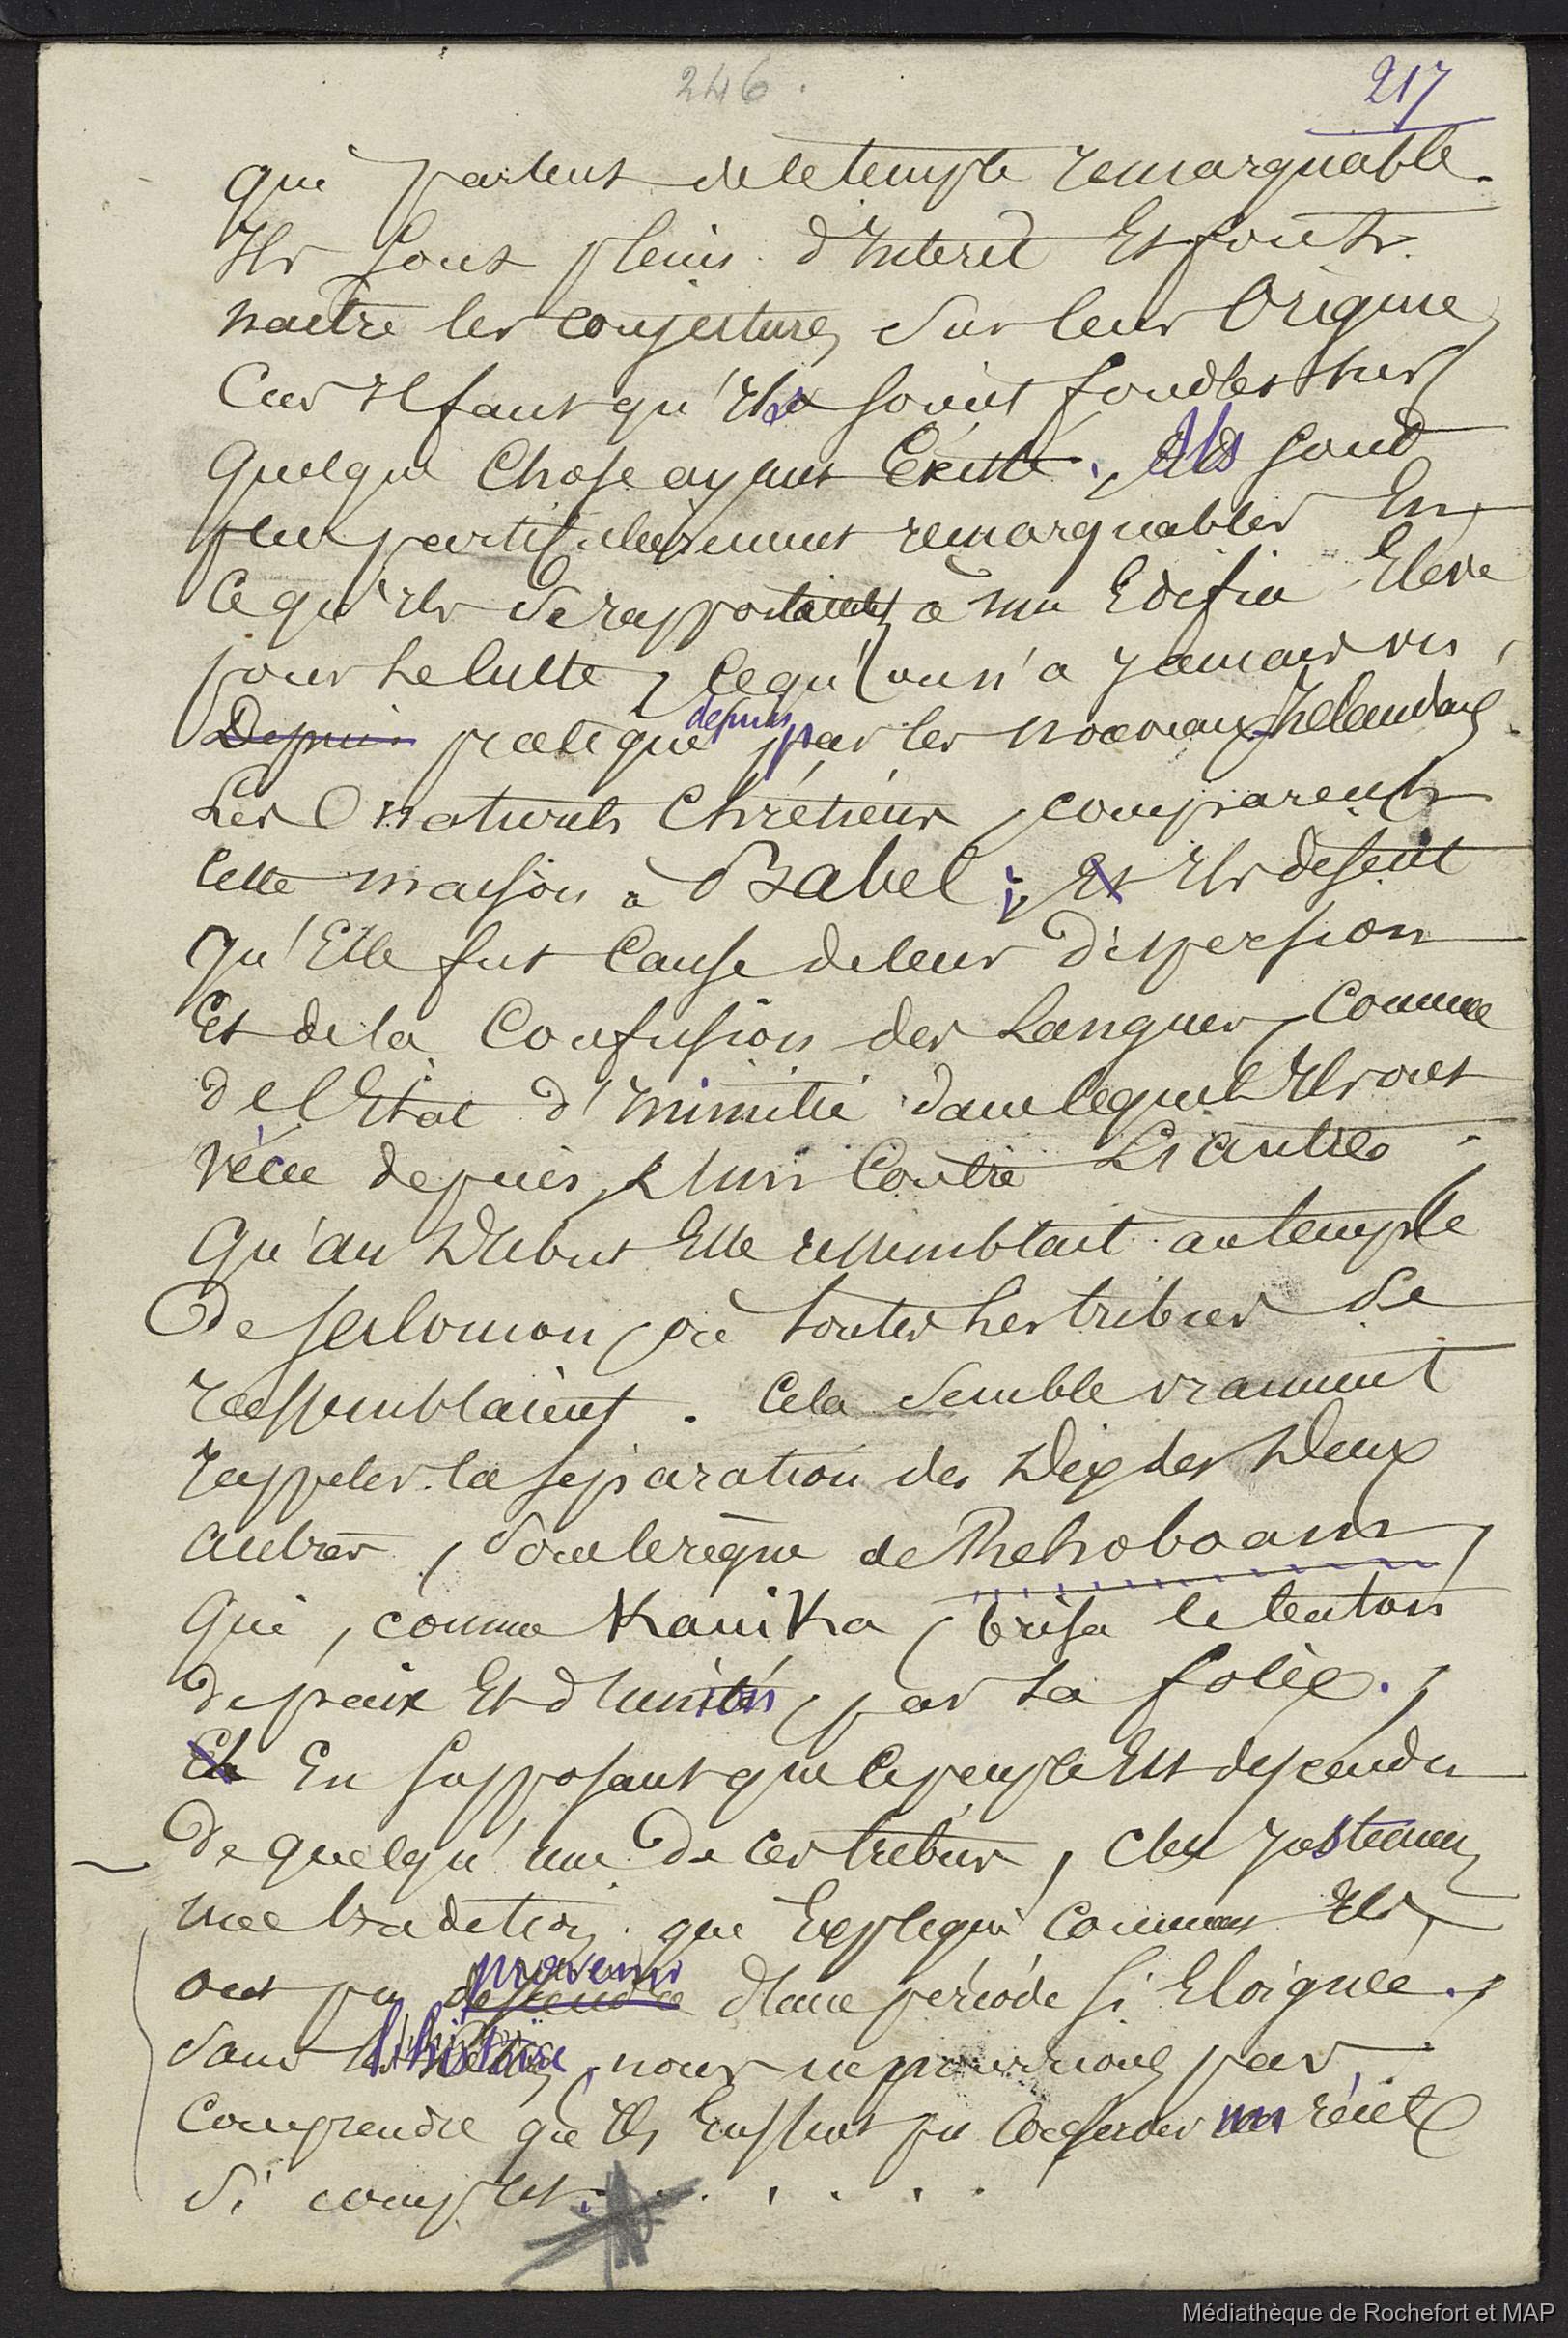 246.
217
qui parlent de le temple remarquable.
Ils sont pleins d'Interêt Et font
naitre les conjectures sur leur Origine,
Car Il faut qu'Ils soient fondées sur
quelque Chose ayant Existé. Ils sont
plus particulierement remarquables En
ce qu'Ils se rapportaient à un Edifice Elevé
pour le culte, ce qu'on n'a jamais vu,
Depuis pratiqué depuis par les nouveaux Zelandais.
Les naturels Chrétiens, comparent
cette maison à Babel; Et Ils disent
qu'Elle fut Cause de leur dispersion
Et de la Confusion des Langues, Comme
de l'Etat d'Inimitié dans lequel Ils ont
vécu depuis, l'un Contre Les autres;
Qu'au Début Elle ressemblait au temple
De Salomon, où toutes les tribus se
rassemblaient. Cela semble vraiment
rappeler la séparation des Dix des Deux
autres, sous le règne de Rehoboam,
Qui, comme Kanika, brisa le
de paix Et d'union, par sa folie.
En supposant que le peuple Est descendu
de quelqu'une de ces tribus,
une tradition que Explique Comment Ils
ont pu descendre provenir d'une période si Eloignée.
sans l'histoire, nous ne pourrions pas
Comprendre qu'Ils Eussent pu Conserver un récit
si complet. . . . . . .
Médiathèque de Rochefort et MAP